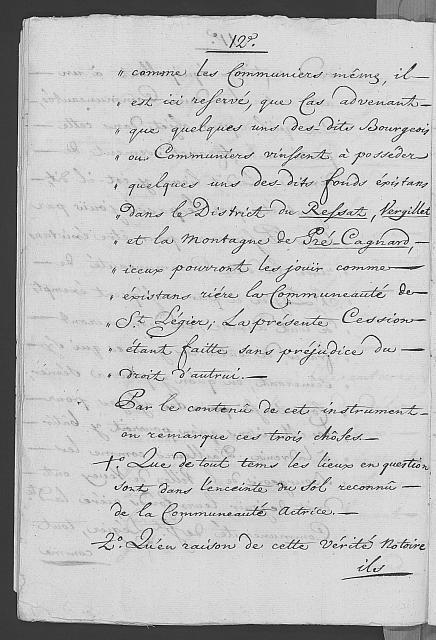 12º.
" comme les Communiers même, il —
" est ici reservé, que Cas advenant —
" que quelques uns des-dits Bourgeois
" ou Communiers vinssent à posséder
" quelques uns des dits fonds éxistans
" dans le District du Ressat, Vergillet
" et la Montagne de Pré-Cagnard, —
" iceux pourront les jouïr comme —
" éxistans riére la Communeauté de
" St. Légier; La présente Cession —
" étant faitte sans préjudice du —
" droit d'autrui. —
Par le contenû de cet instrument —
on remarque ces trois chôses. —
1º. Que de tout tems les lieux en question
sont dans l'enceinte du Sol reconnû —
de la Communeauté Actrice. —
2º. Qu'en raison de cette vérité Notoire
ils